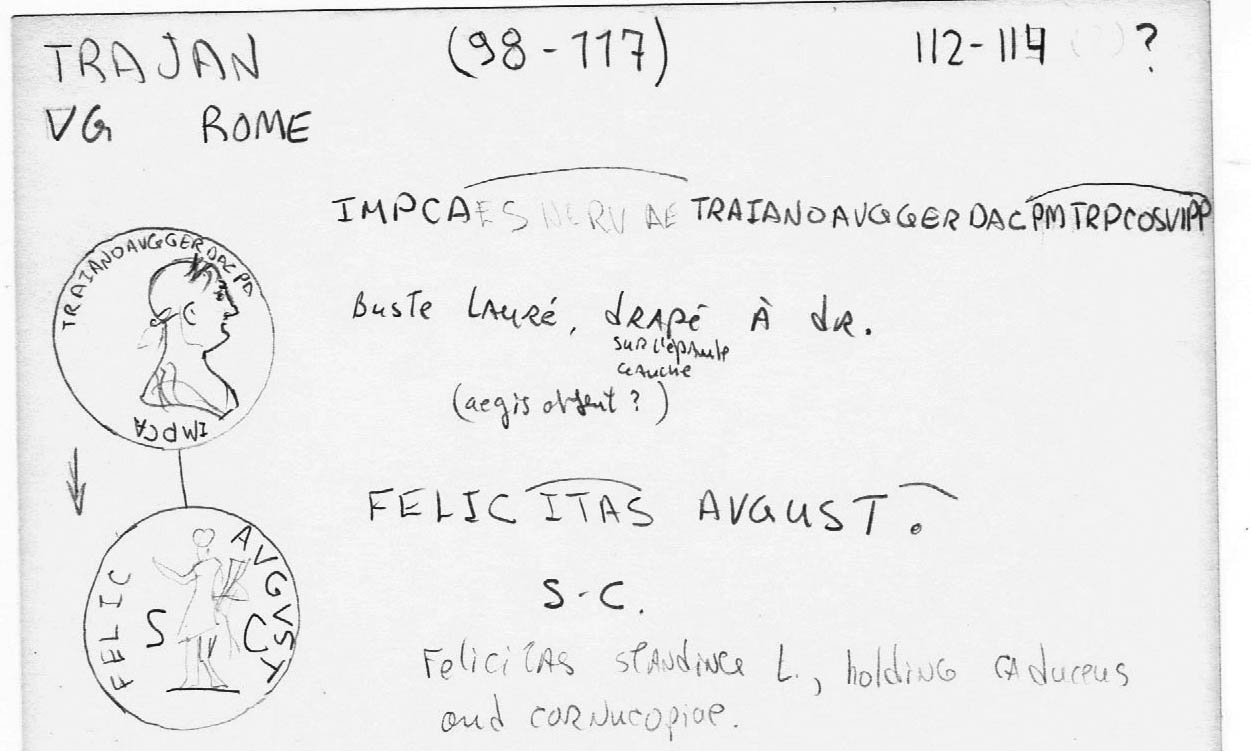 TRAJAN (98-117) 112-114 ?
VG ROME
IMPCAES NERVAE TRAIANOAVGGERDACPMTRPCOSVIPP
TRAIANOAVGGERDACPM
IMPCA
Buste LAURé, dRAPé À dR.
sur l'épaule
GAuche
(aegis absent ?)
FELICITAS AVGUST.
S-C.
FELIC AVGVST
S C
FeliciTAS sTANdiNG L., holdiNG CAduceus
and CORNucopiae.